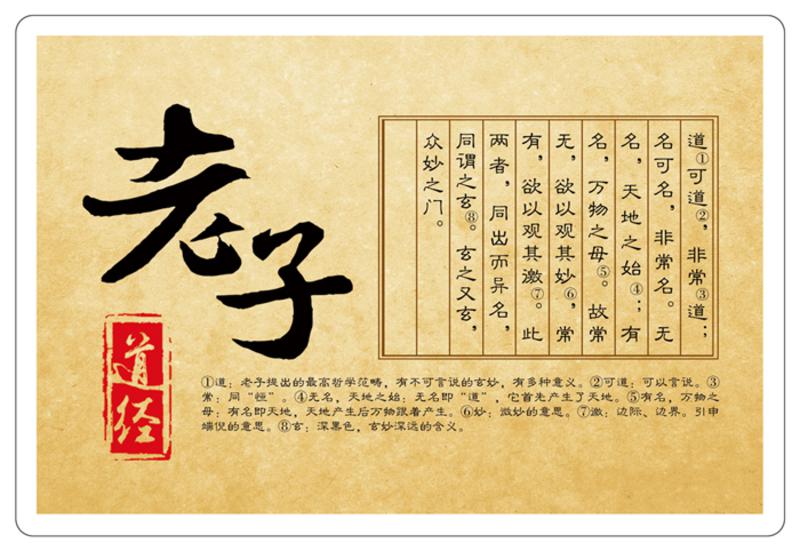 老子
道经
道①可道②，非常③道；
名可名，非常名。无
名，天地之始④；有
名，万物之母⑤。故常
无，欲以观其妙⑥，常
有，欲以观其激⑦。此
两者，同出而异名，
同谓之玄⑧。玄之又玄，
众妙之门。
①道：老子提出的最高哲学范畴，有不可言说的玄妙，有多种意义。②可道：可以言说。③
常：同“恒”。④无名，天地之始：无名即“道”，它首先产生了天地。⑤有名，万物之
母：有名即天地，天地产生后万物跟着产生。⑥妙：微妙的意思。⑦激：边际、边界。引申
端倪的意思。⑧玄：深黑色，玄妙深远的含义。